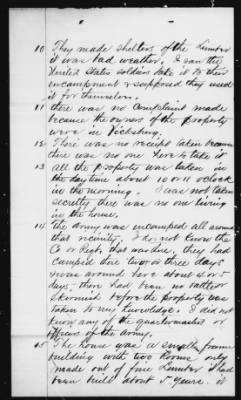 10 They made shelters of the Lumber
it was bad weather. I saw the
United States soldiers take it to their
encampment & supposed they used
it for themselves.
11 there was no complaint made
because the owners of the property
were in Vicksburg.
12 There was no receipt taken because
there was no one here to take it
13 all the property was taken in
the day time about 10 or 11 oclock
in the morning. I was not taken
secretly there was no one living
in the house.
14 the Army was encamped all around
that vicinity. I do not know the
Co or Regt that was there, they had
camped there two or three days
was around here about 4 or 5
days, there had been no battle or
skirmish before the property was
taken to my knowledge. I did not
know any of the quartermaster or
officers of the Army.
15 The house was a small frame
building with two rooms only
made out of pine Lumber it had
been built about 5 years. it